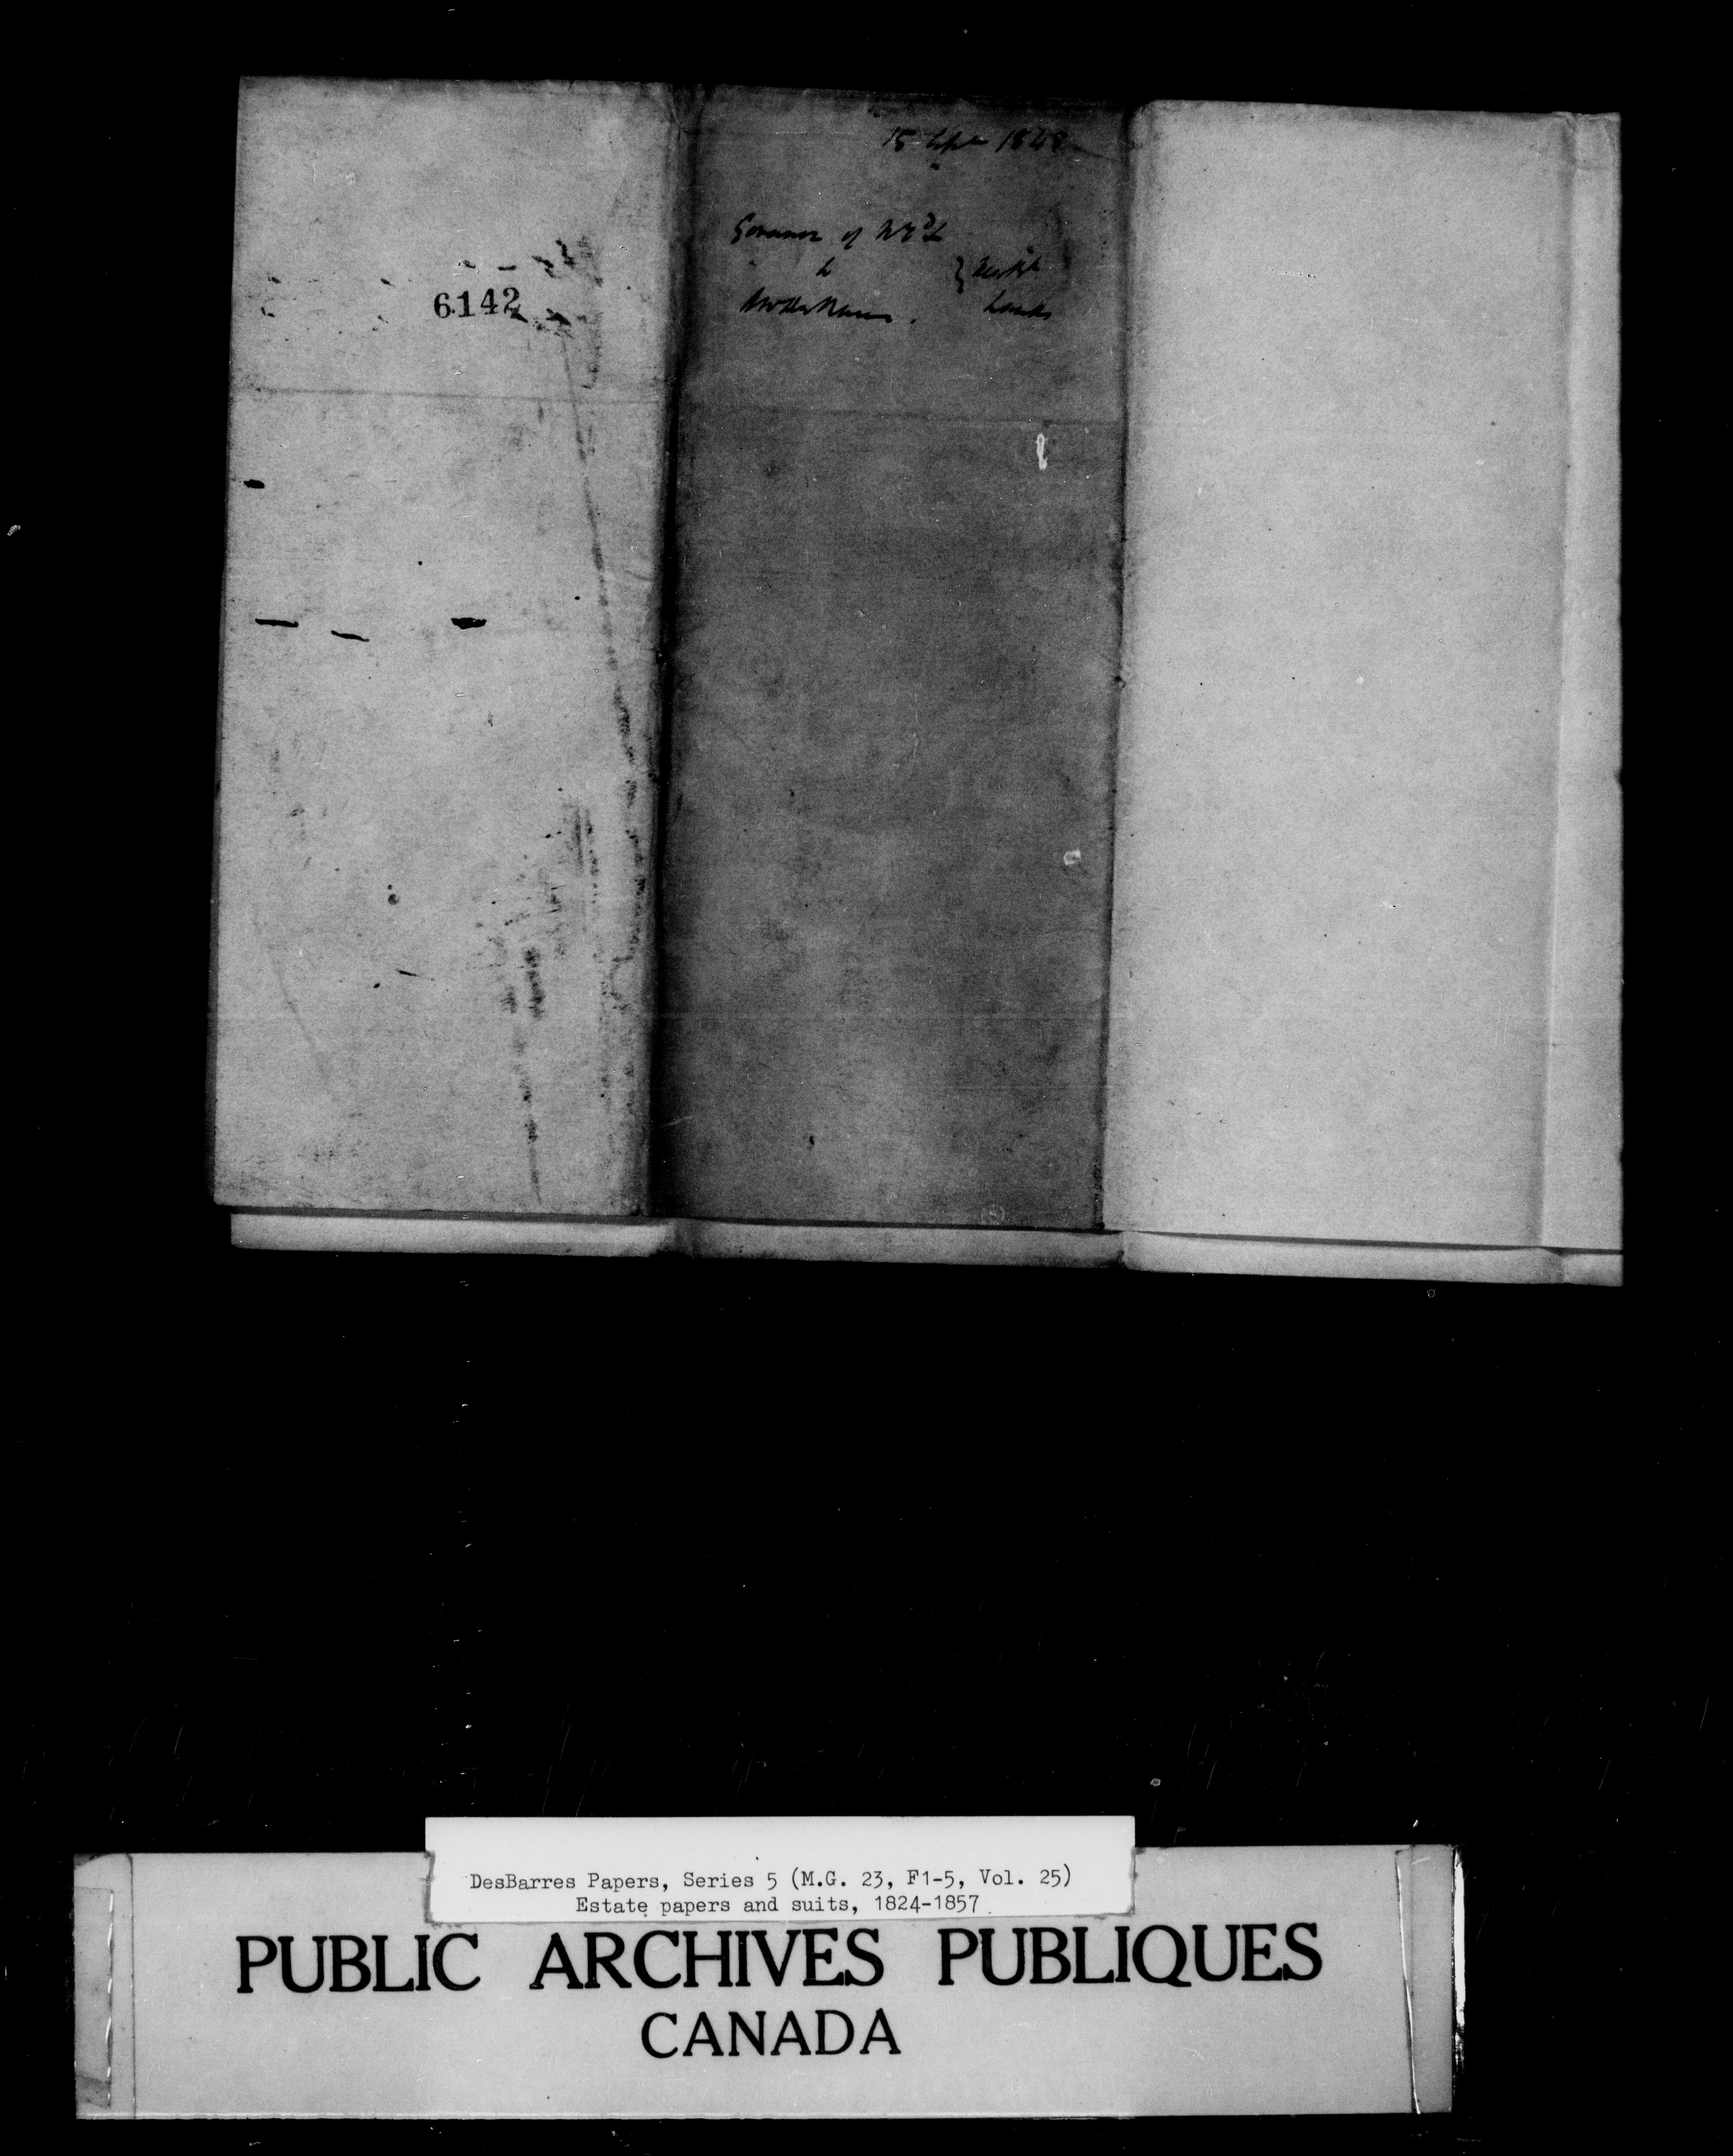 15 Sept 1848
Governor of
to
6142
Lands
DesBarres Papers, Series 5 (M.G. 23, F1-5, Vol. 25)
Estate papers and suits, 1824-1857
PUBLIC ARCHIVES PUBLIQUES
CANADA